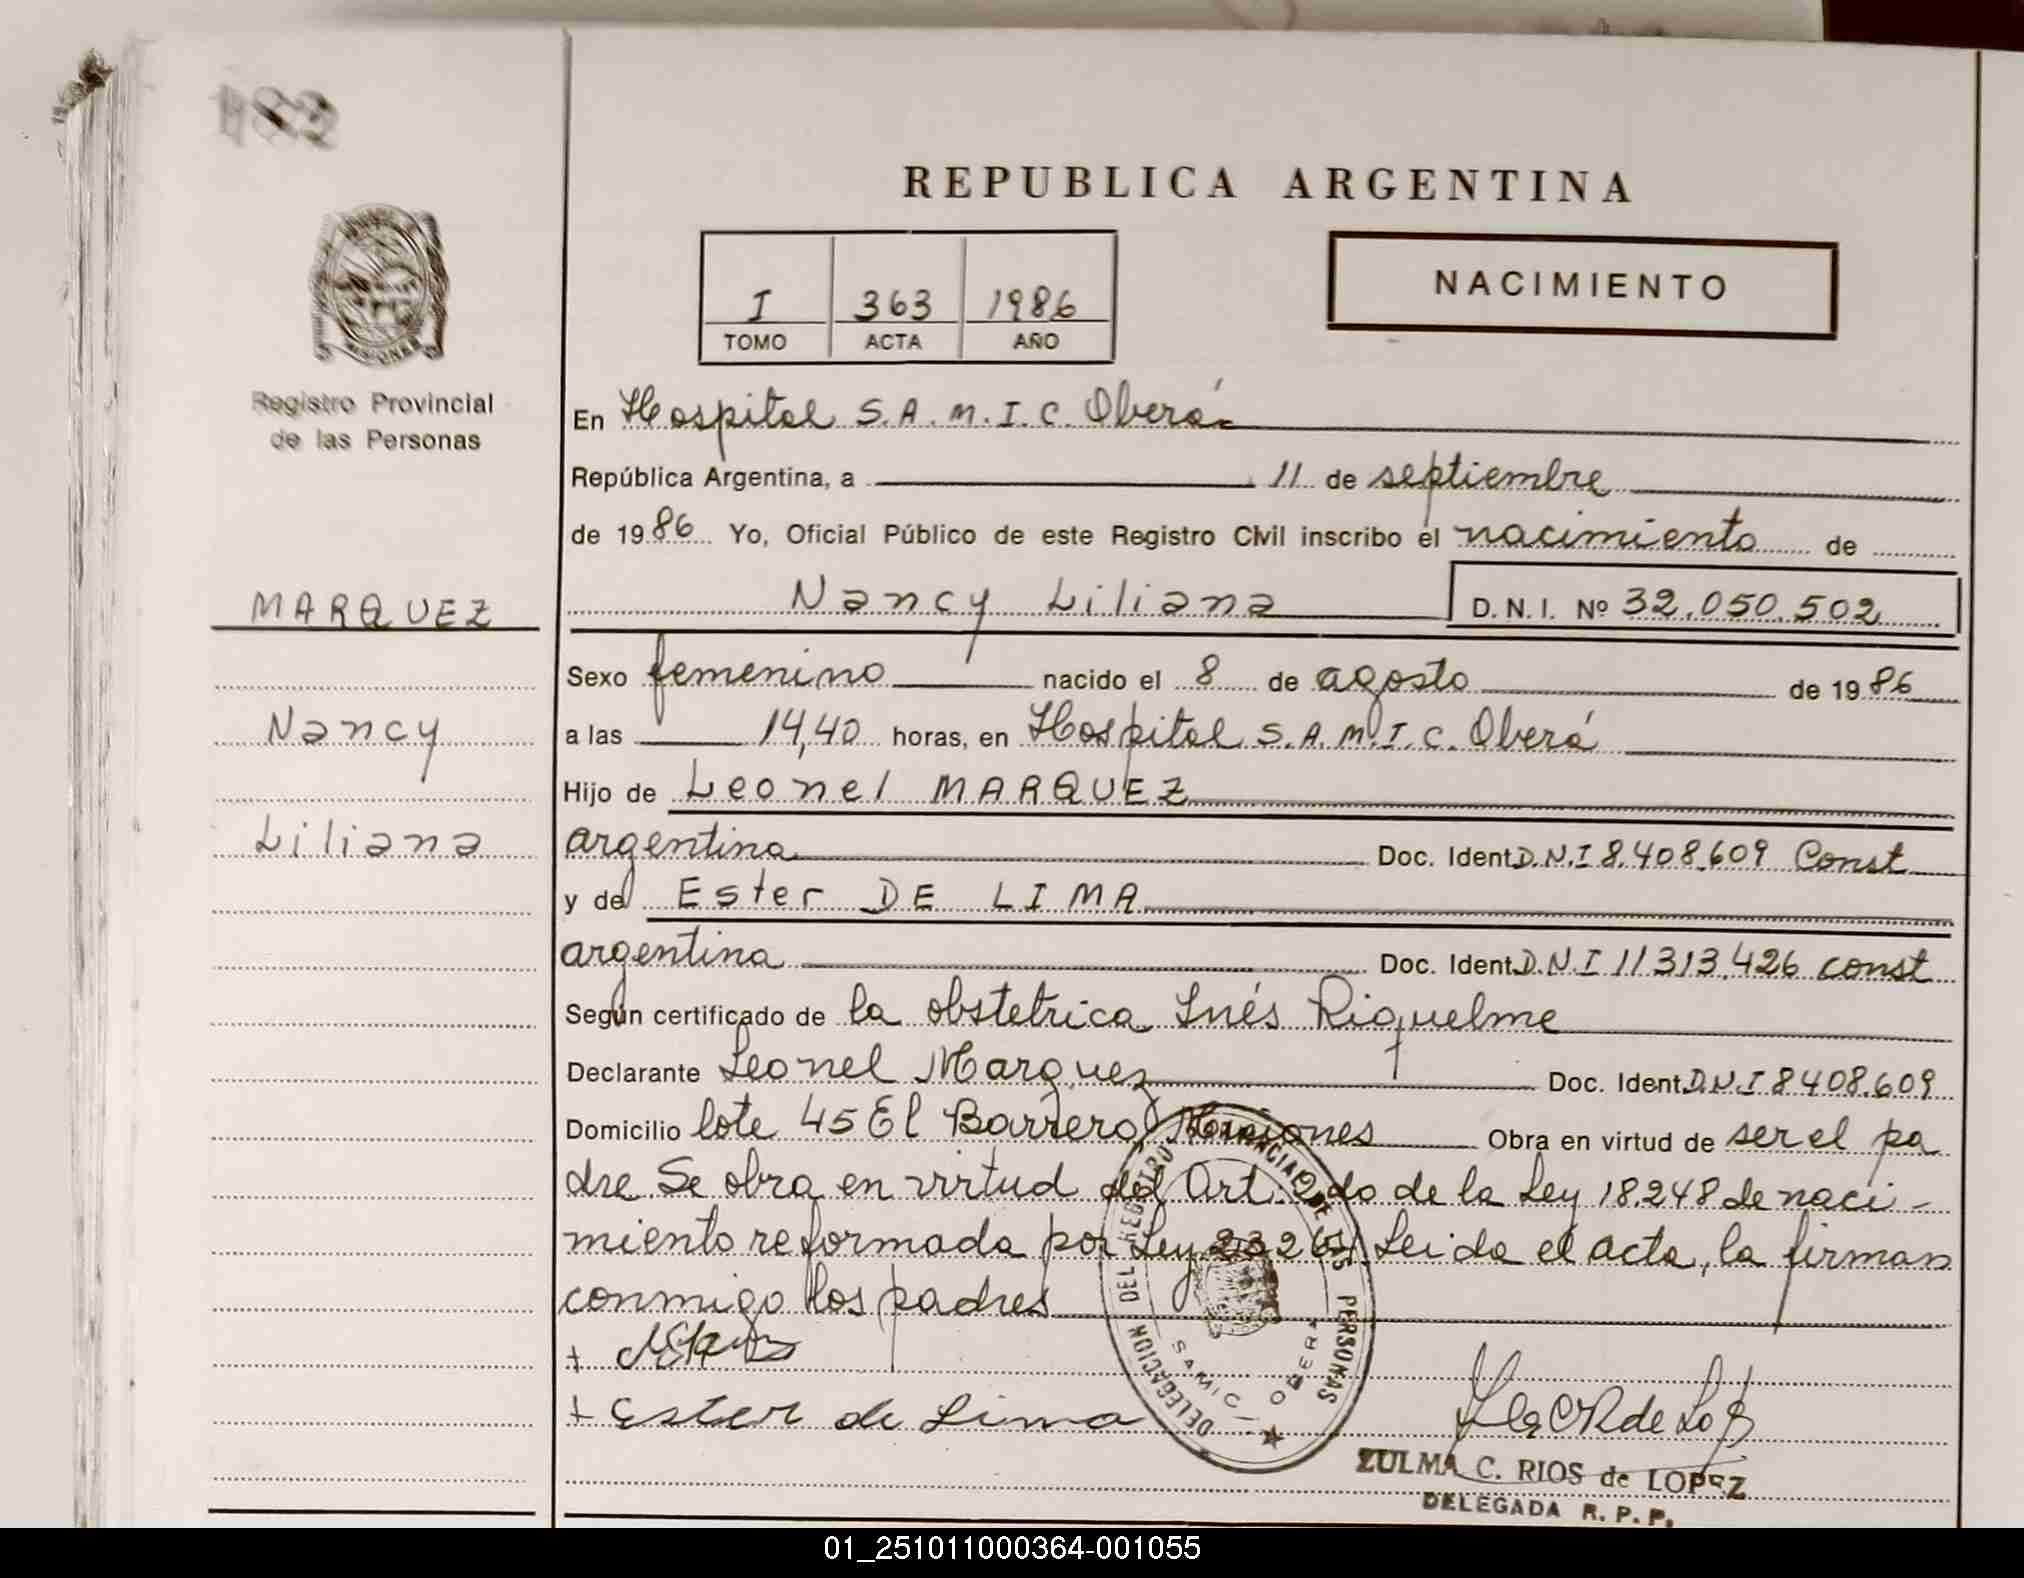 182
REPUBLICA ARGENTINA
NACIMIENTO
I 363 1986
TOMO ACTA AÑO
MISIONES
Registro Provincial
de las Personas
MARQUEZ
Nancy
Liliana
En Hospital S.A.M.I.C. Oberá
República Argentina, a 11 de septiembre
de 1986 Yo, Oficial Público de este Registro Civil inscribo el nacimiento de
Nancy Liliana D.N.I. Nº 32.050.502
Sexo femenino nacido el 8 de agosto de 1986
a las 14,40 horas, en Hospital S.A.M.I.C. Oberá
Hijo de Leonel MARQUEZ
argentina Doc. Ident D.N.I 8.408.609 Const
y de Ester DE LIMA
argentina Doc. Ident. D.N.I 11313.426 const
Según certificado de la obstetrica Inés Riquelme
Declarante Leonel Marquez Doc. Ident. D.N.I 8408.609
Domicilio lote 45 El Barrero, Misiones Obra en virtud de ser el pa
dre. Se obra en virtud del Art. 2do de la Ley 18.248 de naci-
miento reformada por Ley 23264. Leida el acta, la firman
conmigo los padres
+ Ester de Lima
DELEGACION DEL REGISTRO PROVINCIAL DE LAS PERSONAS
SAMIC - OBERA
ZULMA C. RIOS de LOPEZ
DELEGADA R. P. P.
01_251011000364-001055